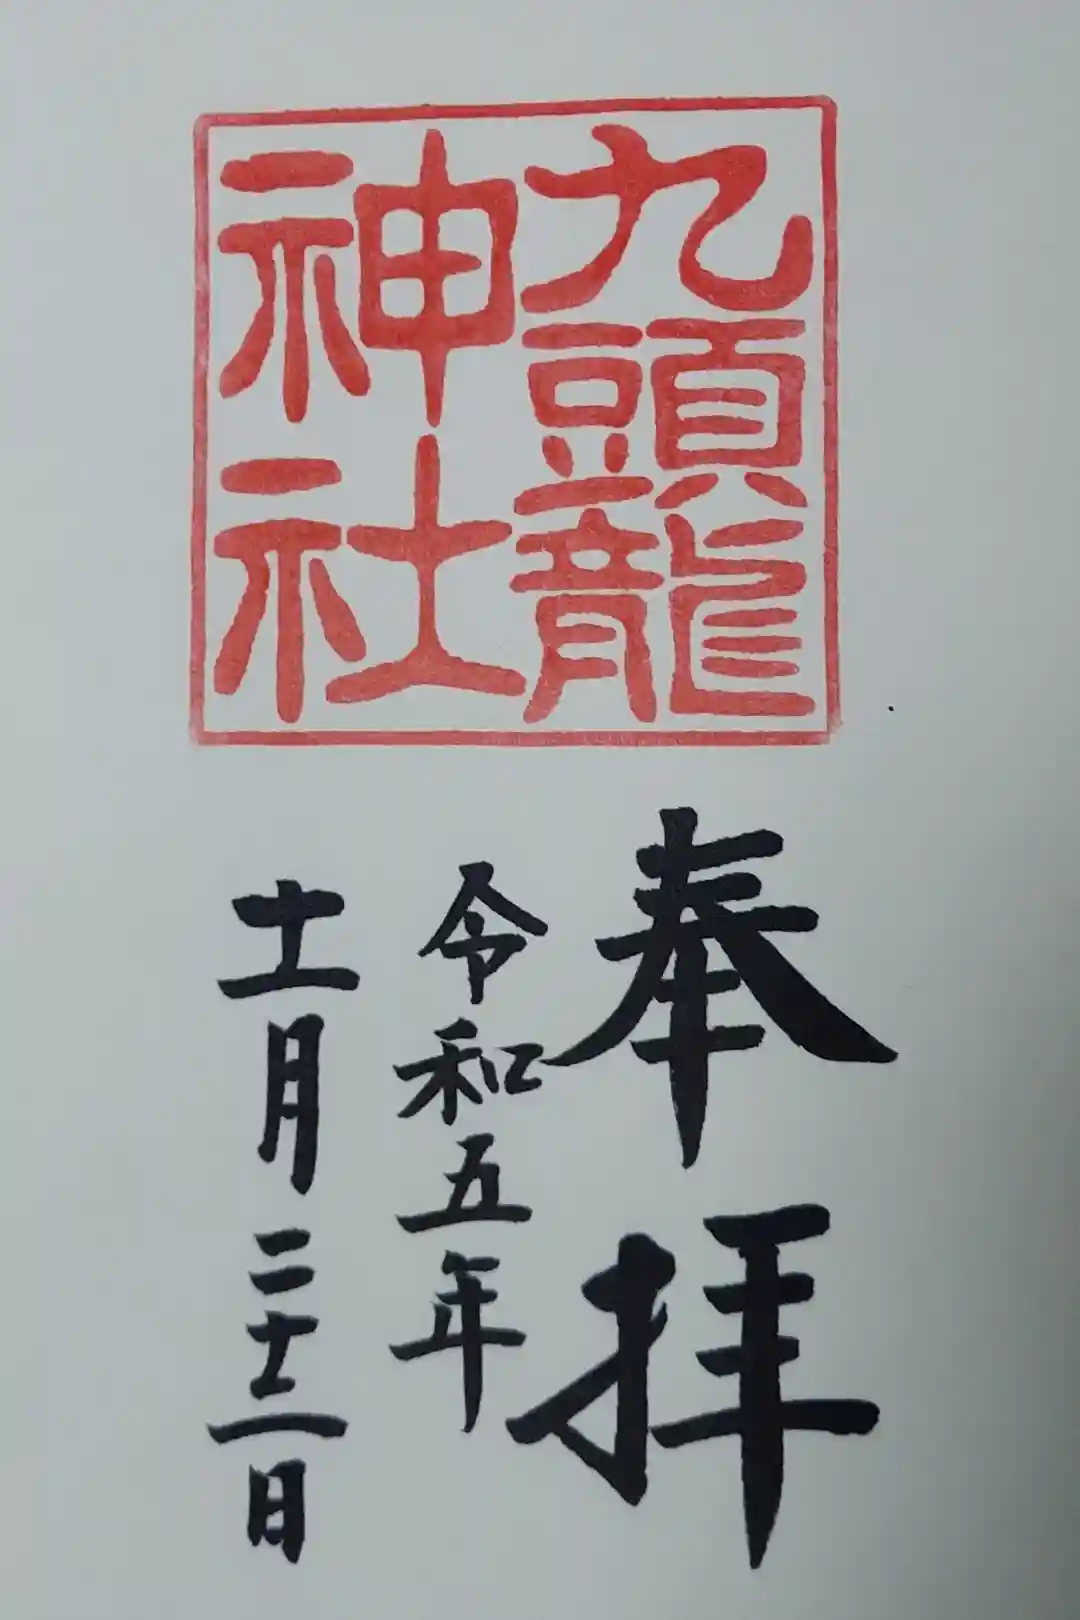 九頭龍
神社
奉拝
令和五年
十一月二十二日